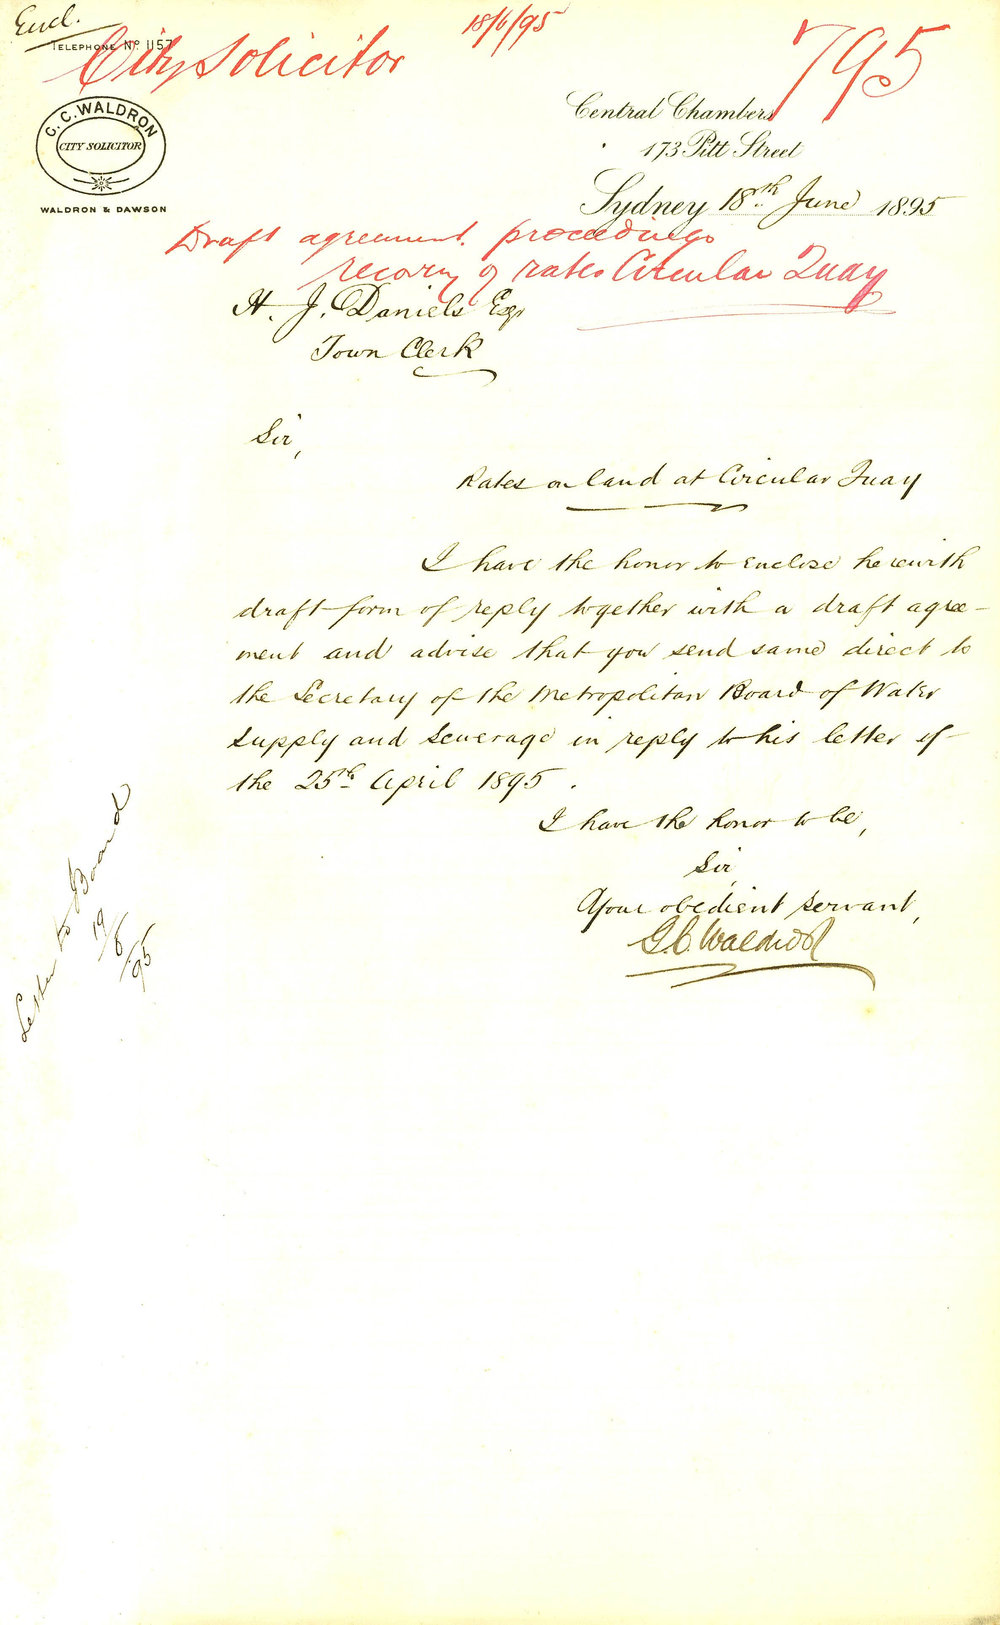 Encl.
18/6/95
TELEPHONE No 1157
City Solicitor
795
C. C. WALDRON
CITY SOLICITOR
WALDRON & DAWSON
Central Chambers
173 Pitt Street
Sydney 18th June 1895
Draft agreement proceedings
recovery of rates Circular Quay
H. J. Daniels Esqr
Town Clerk
Sir,
Rates on land at Circular Quay
I have the honor to enclose herewith
draft form of reply together with a draft agree-
ment and advise that you send same direct to
the Secretary of the Metropolitan Board of Water
Supply and Sewerage in reply to his letter of
the 25th April 1895.
I have the honor to be,
Sir,
Your obedient servant,
G. C. Waldron
Letter to Board
19/6/95